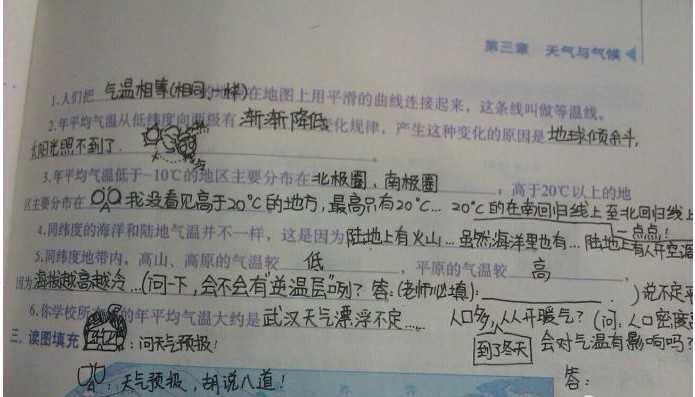 第三章 天气与气候
1.人们把 气温相等(相同,一样) 的地方在地图上用平滑的曲线连接起来,这条线叫做等温线。
2.年平均气温从低纬度向两极有 渐渐降低 变化规律,产生这种变化的原因是 地球倾斜,
太阳光照不到了。
3.年平均气温低于-10℃的地区主要分布在 北极圈、南极圈 ,高于20℃以上的地
区主要分布在 我没看见高于20℃的地方,最高只有20℃... 20℃的在南回归线上至北回归线上
一点点!
4.同纬度的海洋和陆地气温并不一样,这是因为 陆地上有火山...虽然海洋里也有...陆地上有人开空调
5.同纬度地带内,高山、高原的气温较 低 ,平原的气温较 高
因为 海拔越高越冷...(问一下,会不会有"逆温层"的例? 答:(老师必填): )说不定平
6.你学校所 的年平均气温大约是 武汉天气漂浮不定...... 人口多,人人开暖气?(问:人口密度
到了冬天 会对气温有影响吗?
三、读图填充 :问天气预报!
答:
:天气预报,胡说八道!